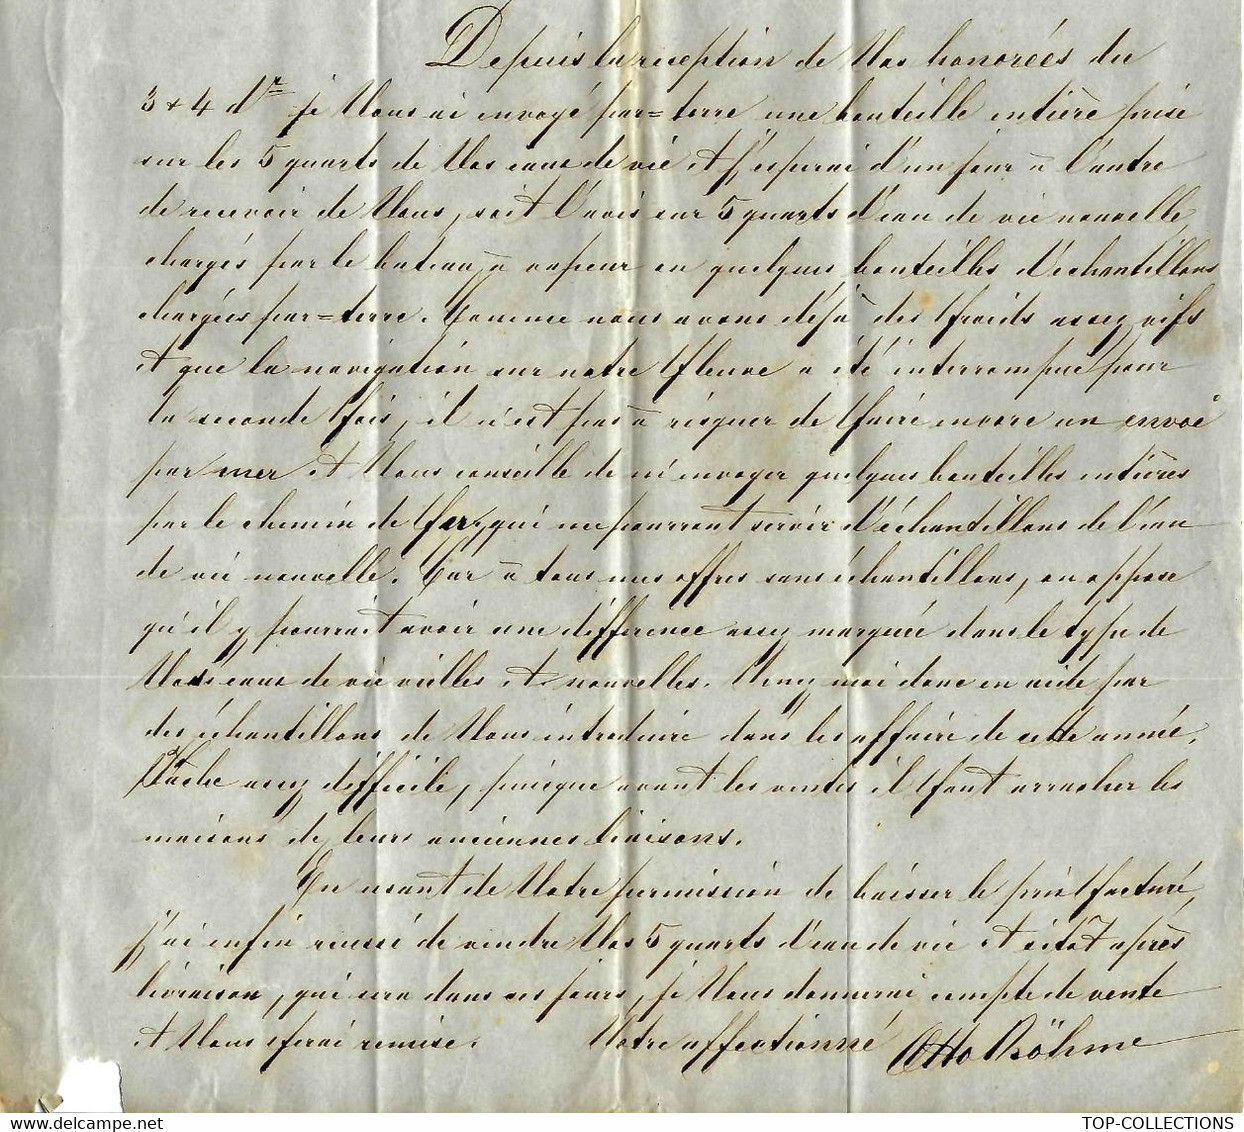 Depuis la reception de Vos honorées du
3 & 4 dr je Vous ai envoyé par=terre une bouteille entière prise
sur les 5 quarts de Vos eaux de vie et j'esperai d'un jour à l'autre
de recevoir de Vous, soit l'avis sur 5 quarts d'eau de vie nouvelle,
chargés par le bateau à vapeur ou quelques bouteilles d'échantillons
chargées par=terre. Comme nous avons déjà des froids assez vifs
et que la navigation sur notre fleuve a été interrompue pour
la seconde fois, il n'est pas à risquer de faire encore un envoi
par mer et Vous conseille de m'envoyer quelques bouteilles entières
par le chemin de fer, qui me pourront servir d'échantillons de l'eau
de vie nouvelle. Car à tous mes offres sans échantillons, on oppose
qu'il y pourrait avoir une difference assez marquée dans le type de
Vos eaux de vie vieilles et nouvelles. Venez moi donc en aide par
des échantillons de Vous introduire dans les affaire de cette année.
Tache assez difficile, puisque avant les ventes il faut arracher les
maisons de leurs anciennes liaisons.
En usant de Votre permission de baisser le prix facturé,
j'ai enfin reussi de vendre Vos 5 quarts d'eau de vie et sitot après
livraison, qui sera dans ces jours, je Vous donnerai compte de vente
et Vous ferai remise. Votre affectionné Otto Böhme
TOP-COLLECTIONS